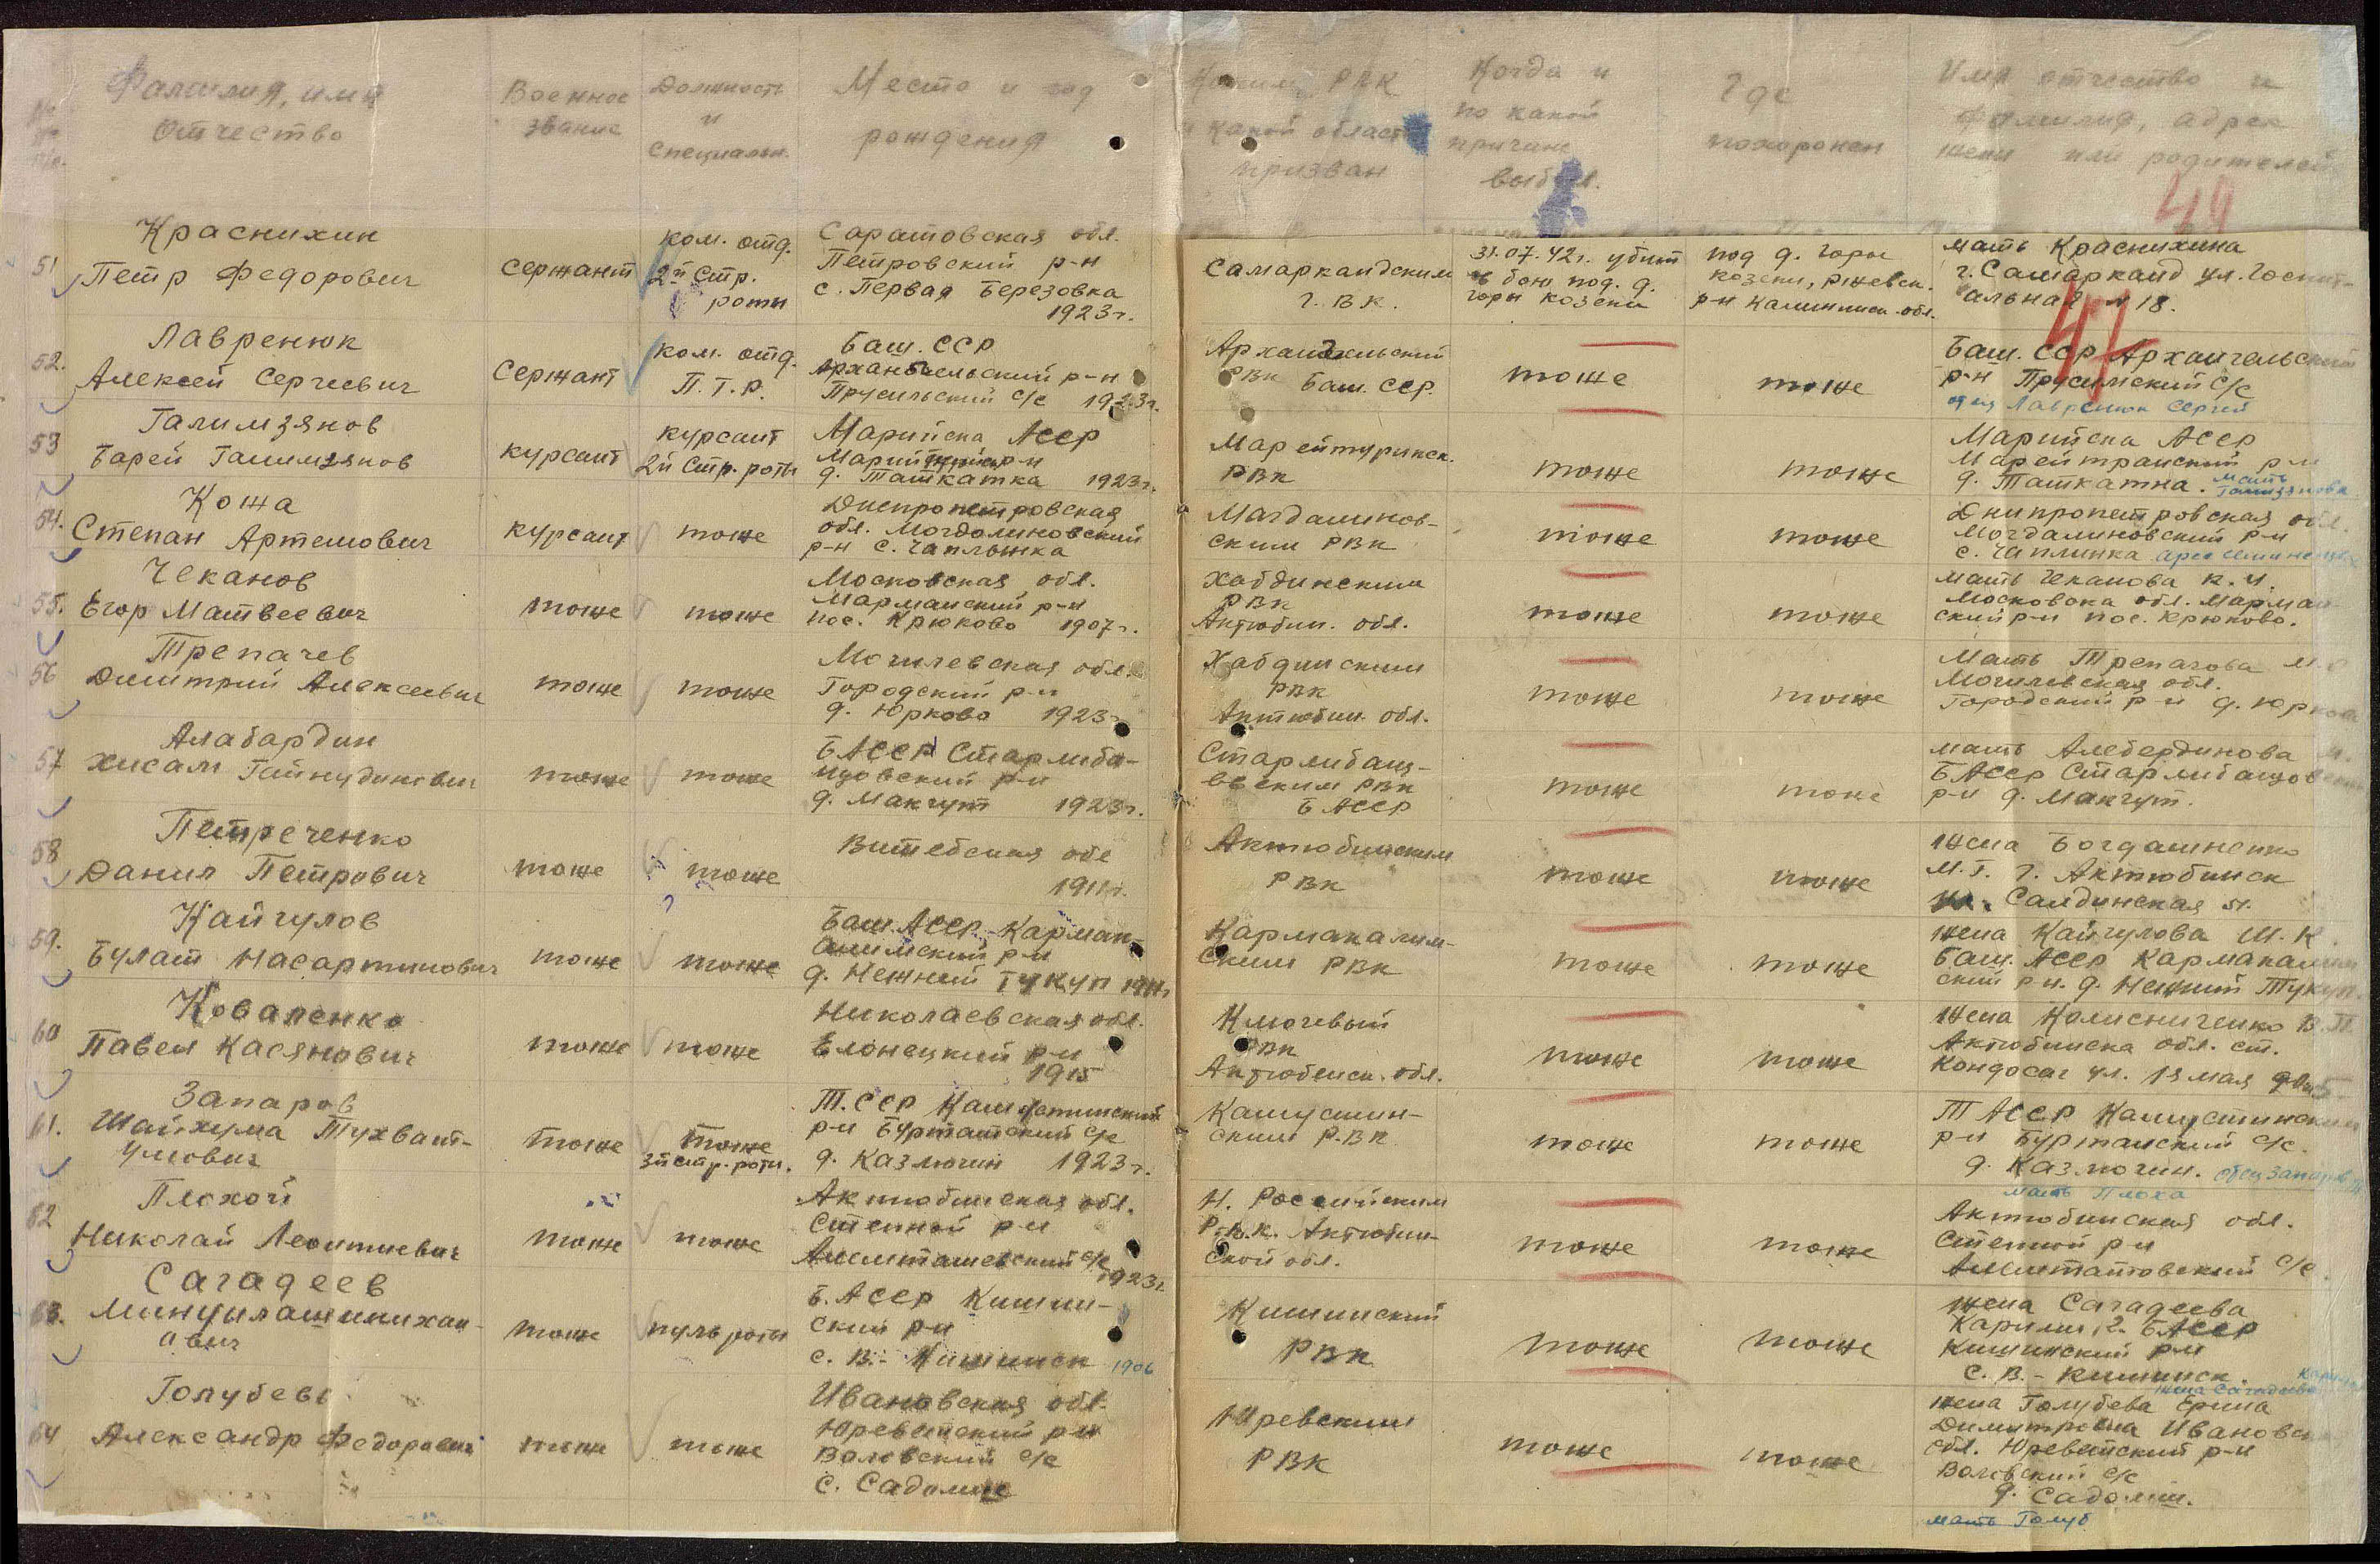 Фамилия, имя
Отчество
Военное
звание
Должность
и
специальн.
Место и год
рождения
Каким РВК
и какой области
призван
Когда и
по какой
причине
выбыл.
Где
похоронен
Имя отчество и
фамилия, адрес
жены или родителей
49
47
51
Краснихин
Петр Федорович
сержант
ком. отд.
2й Стр.
роты
Саратовская обл.
Петровский р-н
с. Первая Березовка
1923г.
Самаркандским
Г.В.К.
31.07.42г. убит
в бою под. д.
горы козеки
под д. Горы
козеки, ржевск.
р-н Калининск. обл.
мать Краснихина
г. Самарканд ул. Госпит-
альная № 18.
52.
Лавренюк
Алексей Сергеевич
Сержант
ком. отд.
П.Т.Р.
Баш. ССР
Архангельский р-н
Прусильский с/с 1923г.
Архангельский
РВК Баш. ССР.
тоже
тоже
Баш. ССР Архангельский
р-н Прусимский с/с
отец Лавренюк Сергей
53
Галимзянов
Барей Галимзянов
курсант
курсант
2й Стр. роты
Марийска АССР
р-н
д. Ташкатка 1923г.
Марейтуринск.
РВК
тоже
тоже
Марийска АССР
Марейтранский р-н
д. Ташкатна. мать
54.
Кожа
Степан Артемович
курсант
тоже
Днепропетровская
обл. Могдолиновский
р-н с. Чаплынка
Магдалинов-
ским РВК
тоже
тоже
Днипропетровская обл.
Могдалиновский р-н
с. Чаплинка
55.
Чеканов
Егор Матвеевич
тоже
тоже
Московская обл.
Марманский р-н
пос. Крюково 1907г.
Хабдинским
РВК
Актюбин. обл.
тоже
тоже
мать Чеканова К.И.
Московска обл. Марман-
ский р-н пос. Крюково.
56
Трепачев
Димитрий Алексеевич
тоже
тоже
Могилевская обл.
Городский р-н
д. Юрково 1923г
Хабдинским
РВК
Актюбин. обл.
тоже
тоже
Мать Трепачова
Могилевская обл.
Городский р-н д. Юрково
57
Алабардин
Хисам Гайнудинович
тоже
тоже
БАССР Старлиба-
шовский р-н
д. Макгут 1923г.
Старлибаш-
евским РВК
БАССР
тоже
тоже
мать Алебердинова
БАССР Старлибашовский
р-н д. Макгут.
58
Петреченко
Данил Петрович
тоже
тоже
Витебская обл
1911г.
Актюбинским
РВК
тоже
тоже
жена Богдашненко
М.Т. г. Актюбинск
Салдинская 51.
59.
Кайгулов
Булат Насартинович
тоже
тоже
Баш. АССР Карман-
алимский р-н
д. Нежний Тукун 1911г
Кармакалим-
ским РВК
тоже
тоже
жена Кайгулова Ш.К.
Баш. АССР Кармакалим
ский р-н. д. Нежний Тукун.
60
Коваленко
Павел Касянович
тоже
тоже
Николаевская обл.
Еланецкий р-н
1915
Ключевый
РВК
Актюбенск. обл.
тоже
тоже
жена Колисниченко В.П.
Актюбинска обл. ст.
Кондосаг ул. 1я мая дом 5
61.
Запаров
Шайхума Тухват-
улович
тоже
тоже
3й стр. роты.
Т.ССР Камустинский
р-н Буртатский с/с
д. Казлючин 1923г.
Камустин-
ским Р.ВК
тоже
тоже
ТАССР Камустинский
р-н Буртанский с/с.
д. Казлючин. отец Запаров
62
Плохой
Николай Леонтиевич
тоже
тоже
Актюбинская обл.
Степной р-н
Алимташевский с/с
1923г.
Н. Российским
Р.В.К. Актюбин-
ской обл.
тоже
тоже
мать Плоха
Актюбинская обл.
Степной р-н
Алимтатовский с/с.
63.
Сагадеев
Мингулашинихан-
авич
тоже
пуль роты
Б.АССР Кишин-
ский р-н
с. В.- Кишинск 1906
Кишинский
РВК
тоже
тоже
жена Сагадеева
Карими, 2. БАССР
Кишинский р-н
С. В.- Кишинск.
жена Сагадеева
64
Голубевь
Александр Федорович
тоже
тоже
Ивановская обл.
Юревецский р-н
Воловский с/с
с. Садолище
Юревским
РВК
тоже
тоже
жена Голубева Ерина
Димитровна Ивановск
обл. Юревецский р-н
Воловский с/с
д. Садолищ.
мать Голуб